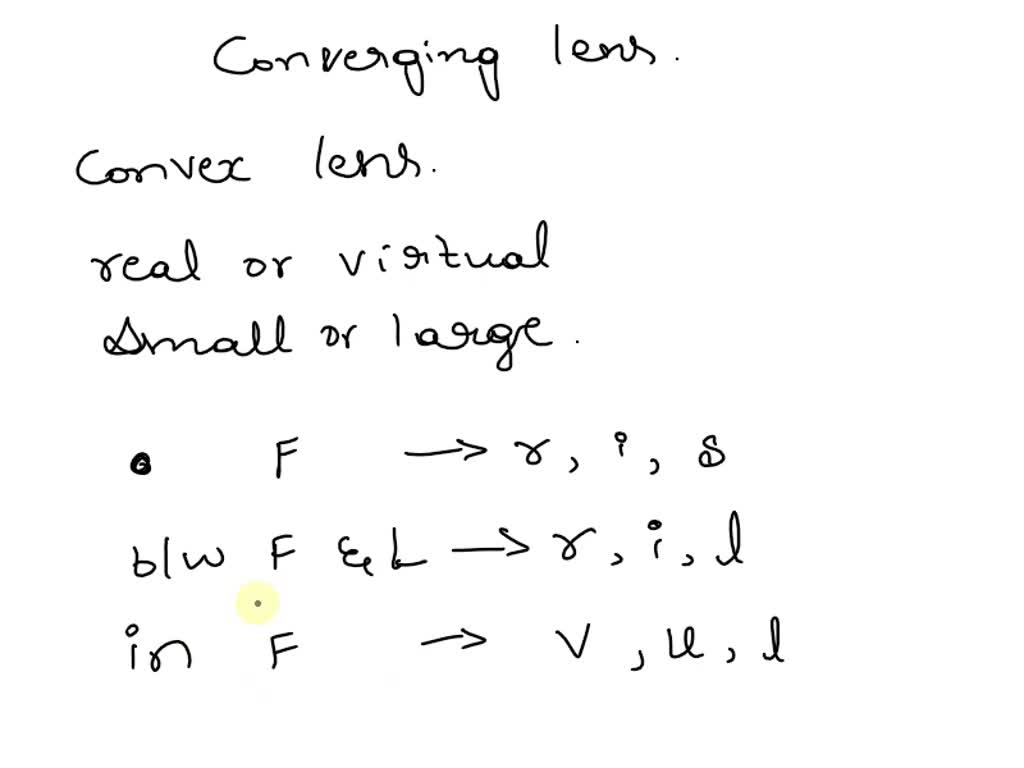 Converging lens.
Convex lens.
real or virtual
Small or large.
F → r, i, s
b/w F & L → r, i, l
in F → v, u, l